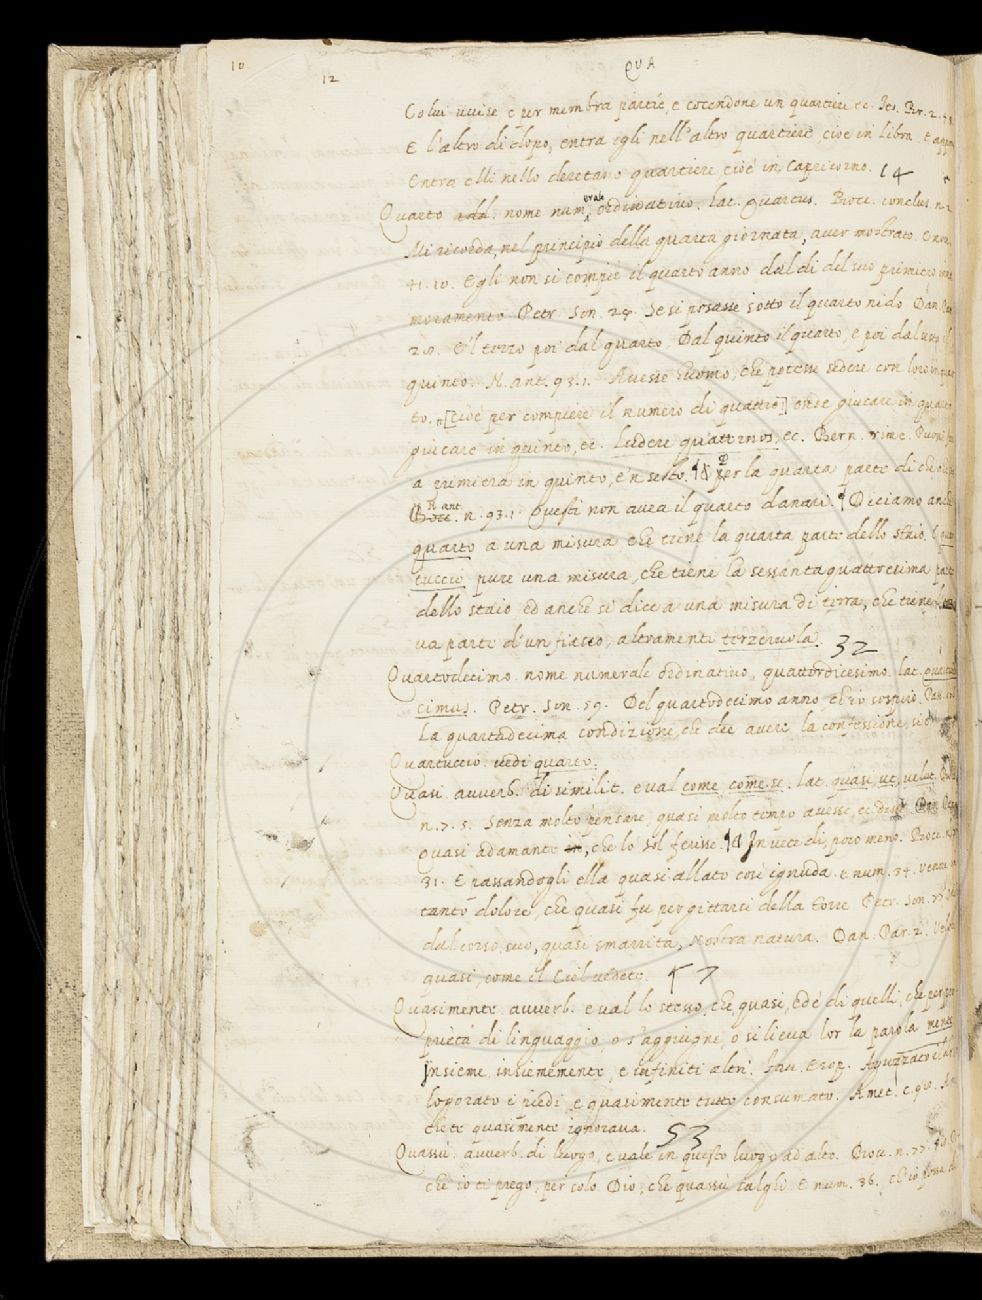 10
12
QUA
Colui uuise, e per membra partie, e cocendone un quartiere ec. Tes. Br. 2.
E l'altro dì dopo, entra egli nell'altro quartiere, cioè in Libra. E
Entra elli nello deretano quartiere, cioè in Capricorno. 14
Quarto add. nome numerale ordinatiuo. Lat. quartus. Bocc. conclus. n. 2
Mi ricorda, nel principio della quarta giornata, auer mostrato. E nou.
41. 10. Egli non si compiè il quarto anno dal dì del suo primiero
moramento. Petr. Son. 24. Se si posasse sotto il quarto nido. Dan. Par.
28. E'l terzo poi dal quarto, Dal quinto il quarto, e poi dal sesto il
quinto. N. ant. 93. 1. Auesse huomo, che potesse sedere con loro in quar
to. [cioè per compiere il numero di quattro] onde giucare in quarto
giucare in quinto, ec. Ludere quattrinos, ec. Bern. rime.
a primiera in quinto, e 'n sesto. ¶ Per la quarta parte di che
Bocc. N. ant. n. 93. 1. Questi non auea il quarto danari. ¶ Diciamo anche
quarto a una misura che tiene la quarta parte dello staio. E quar
tuccio pure una misura, che tiene la sessantaquattresima parte
dello staio ed anche si dice a una misura di terra, che tiene
ua parte d'un fiasco, altramente terzeruola. 32
Quartodecimo. nome numerale ordinatiuo, quattordicesimo. lat. quartode
cimus. Petr. Son. 59. Del quartodecimo anno, ch'io sospiro.
La quartadecima condizione, che dee auere la confessione, si è
Quartuccio. vedi quarto.
Quasi. auuerb. di similit. e val come, come se. lat. quasi, ut, velut.
n. 7. 5. Senza molto pensare, quasi molto tempo auesse, ec. Dan.
Quasi adamante in, che lo Sol ferisse. ¶ In uece di, poco meno. Bocc. n.
31. E passandogli ella quasi allato così ignuda. e num. 34. Venne in
tanto dolore, che quasi fu per gittarsi della torre. Petr. Son.
dal corso suo, quasi smarrita, Nostra natura. Dan. Par. 2.
quasi, come il Ciel vedete. 47
Quasimente. auuerb. e val lo stesso, che quasi, ed è di quelli, che per pro
prietà di linguaggio, o s'aggiugne, o si lieua lor la parola mente
Insieme insiememente, e infiniti altri. Fau. Esop. Aguzzato
logorato i piedi, e quasimente tutto consumato. Amet. c. 90.
chete quasimente ignoraua. 53
Quassù. auuerb. di luogo, e vale in questo luogo ad alto. Bocc. n. 77.
che io ti prego, per solo Dio, che quassù salghi. E num. 36. ch'io possa